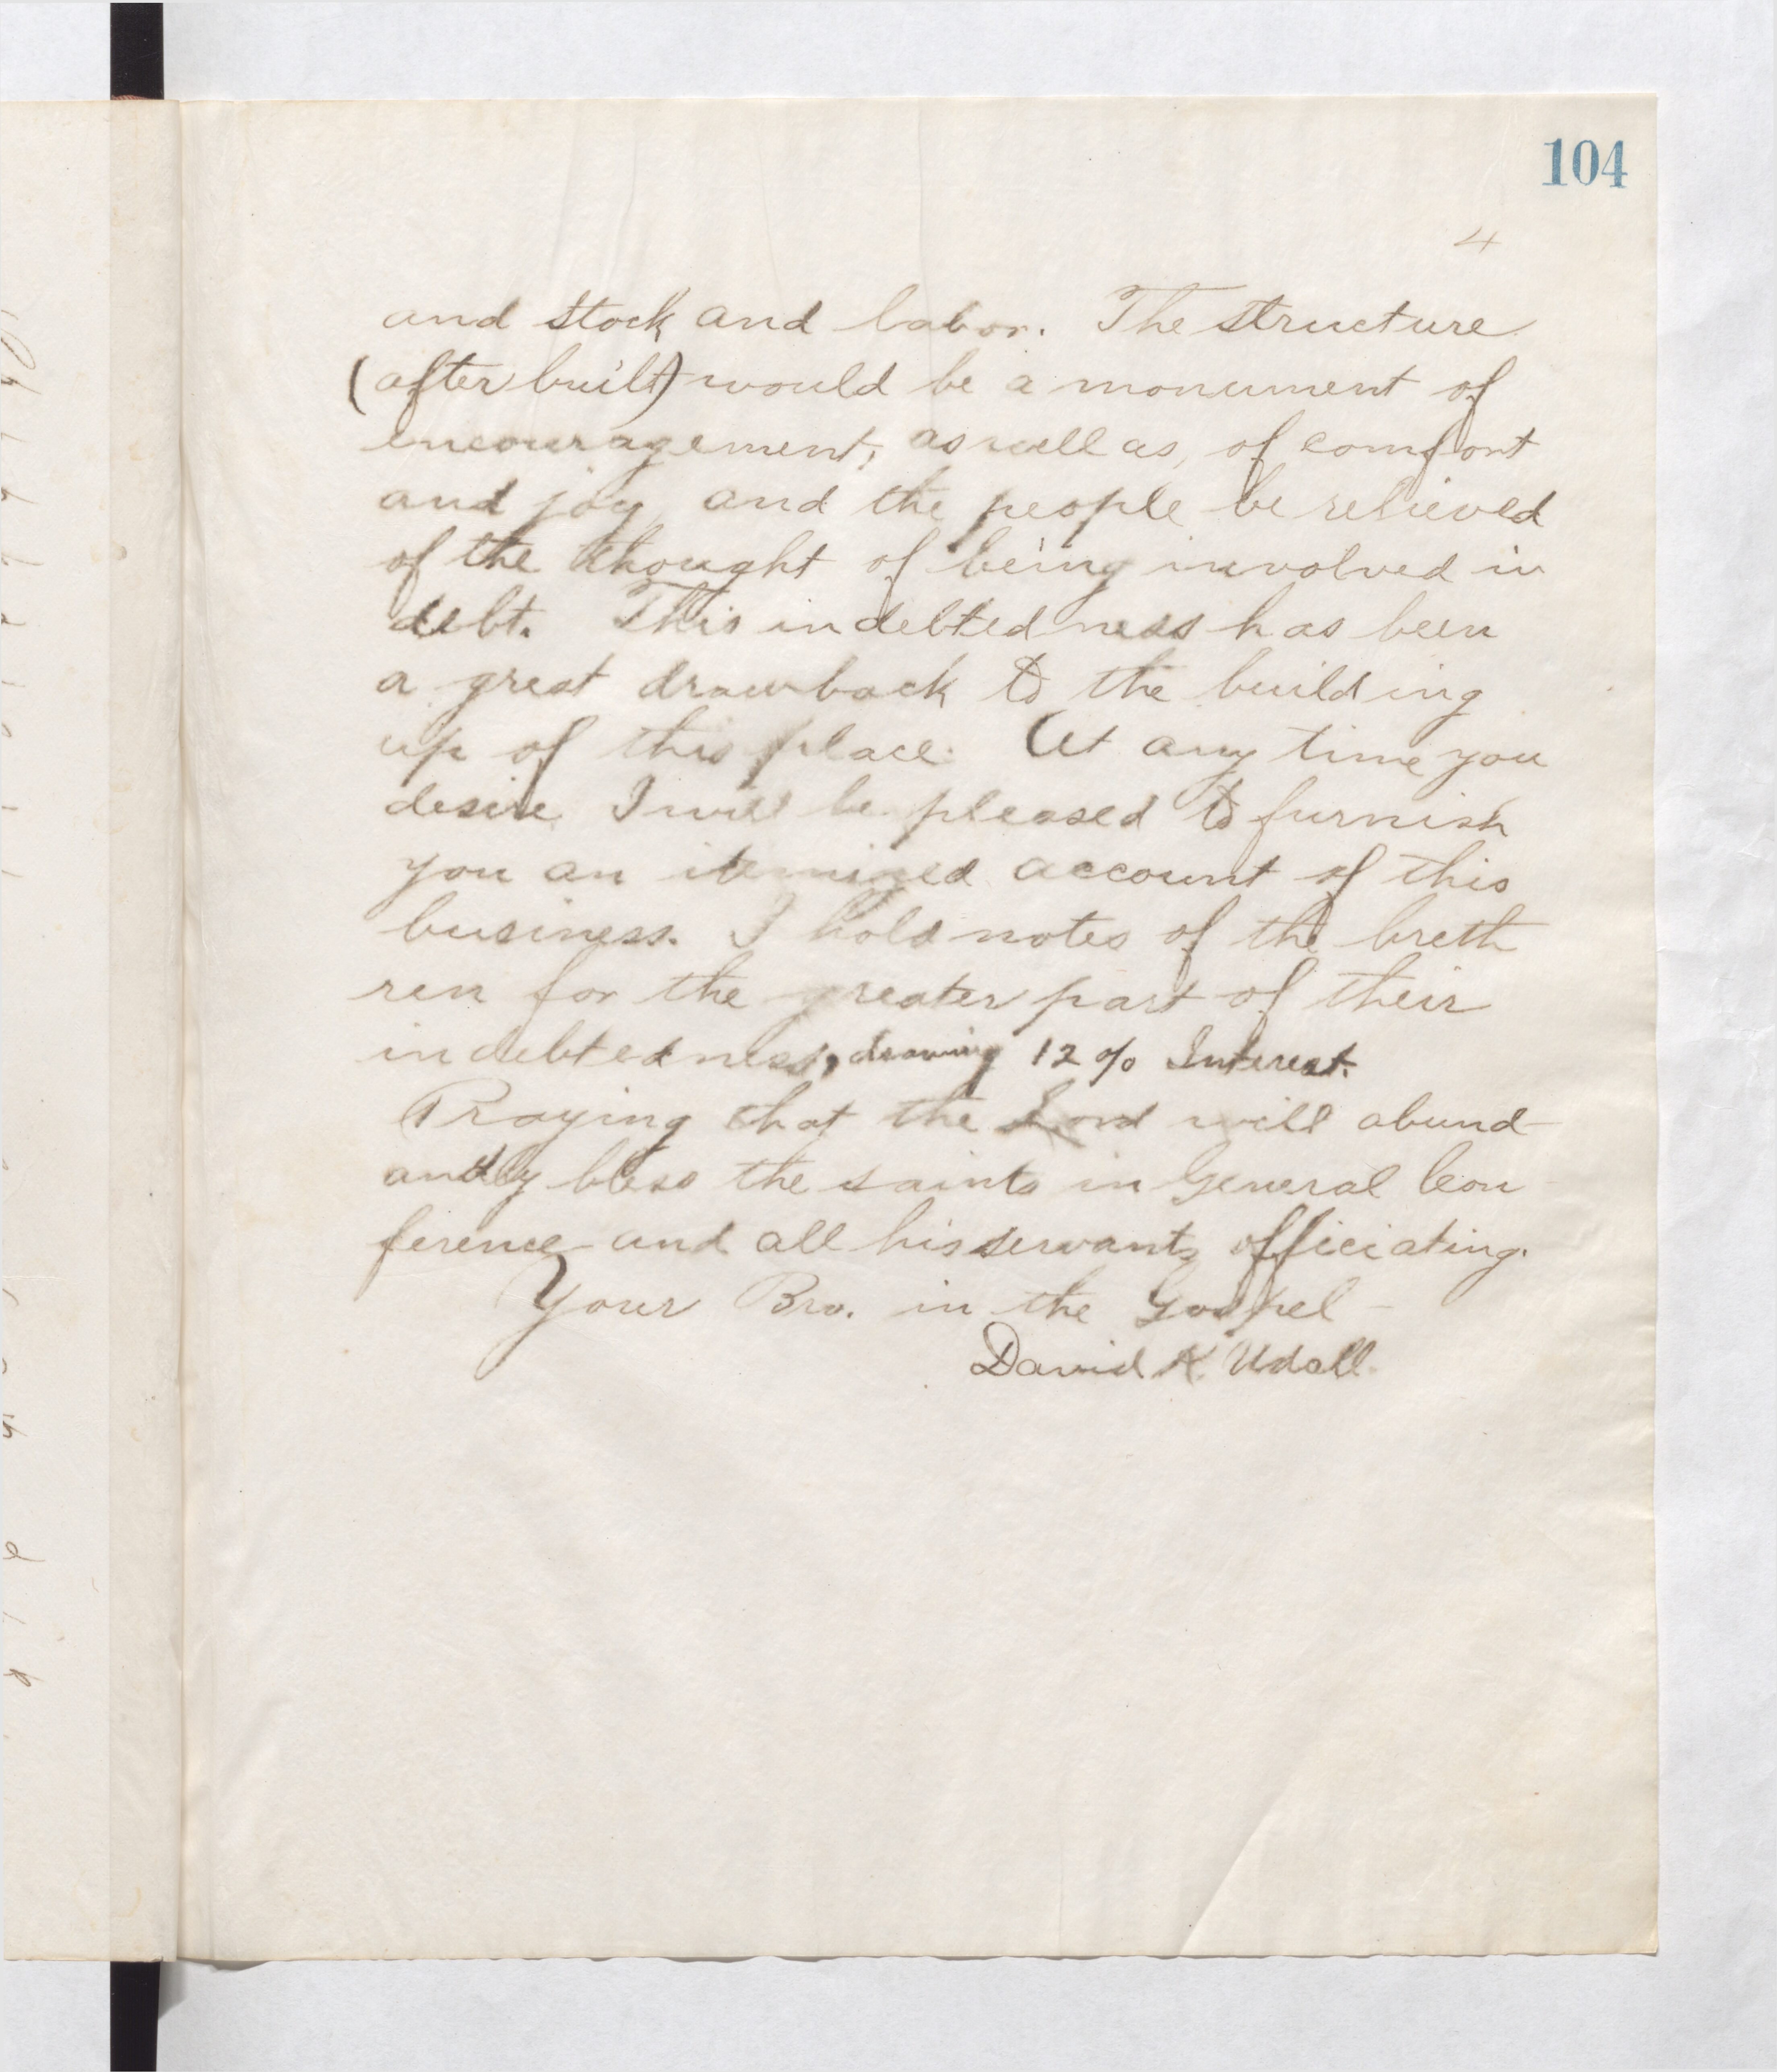 104
4
and stock and labor. The structure
(after built) would be a monument of
encouragement, as well as, of comfort
and joy and the people be relieved
of the thought of being involved in
debt. This indebtedness has been
a great drawback to the building
up of this place. At any time you
desire I will be pleased to furnish
you an itemized account of this
business. I hold notes of the breth
ren for the greater part of their
indebtedness, drawing 12% Interest.
Praying that the Lord will abund
antly bless the saints in General Con
ference and all his servants officiating.
Your Bro. in the Gospel
David K. Udall